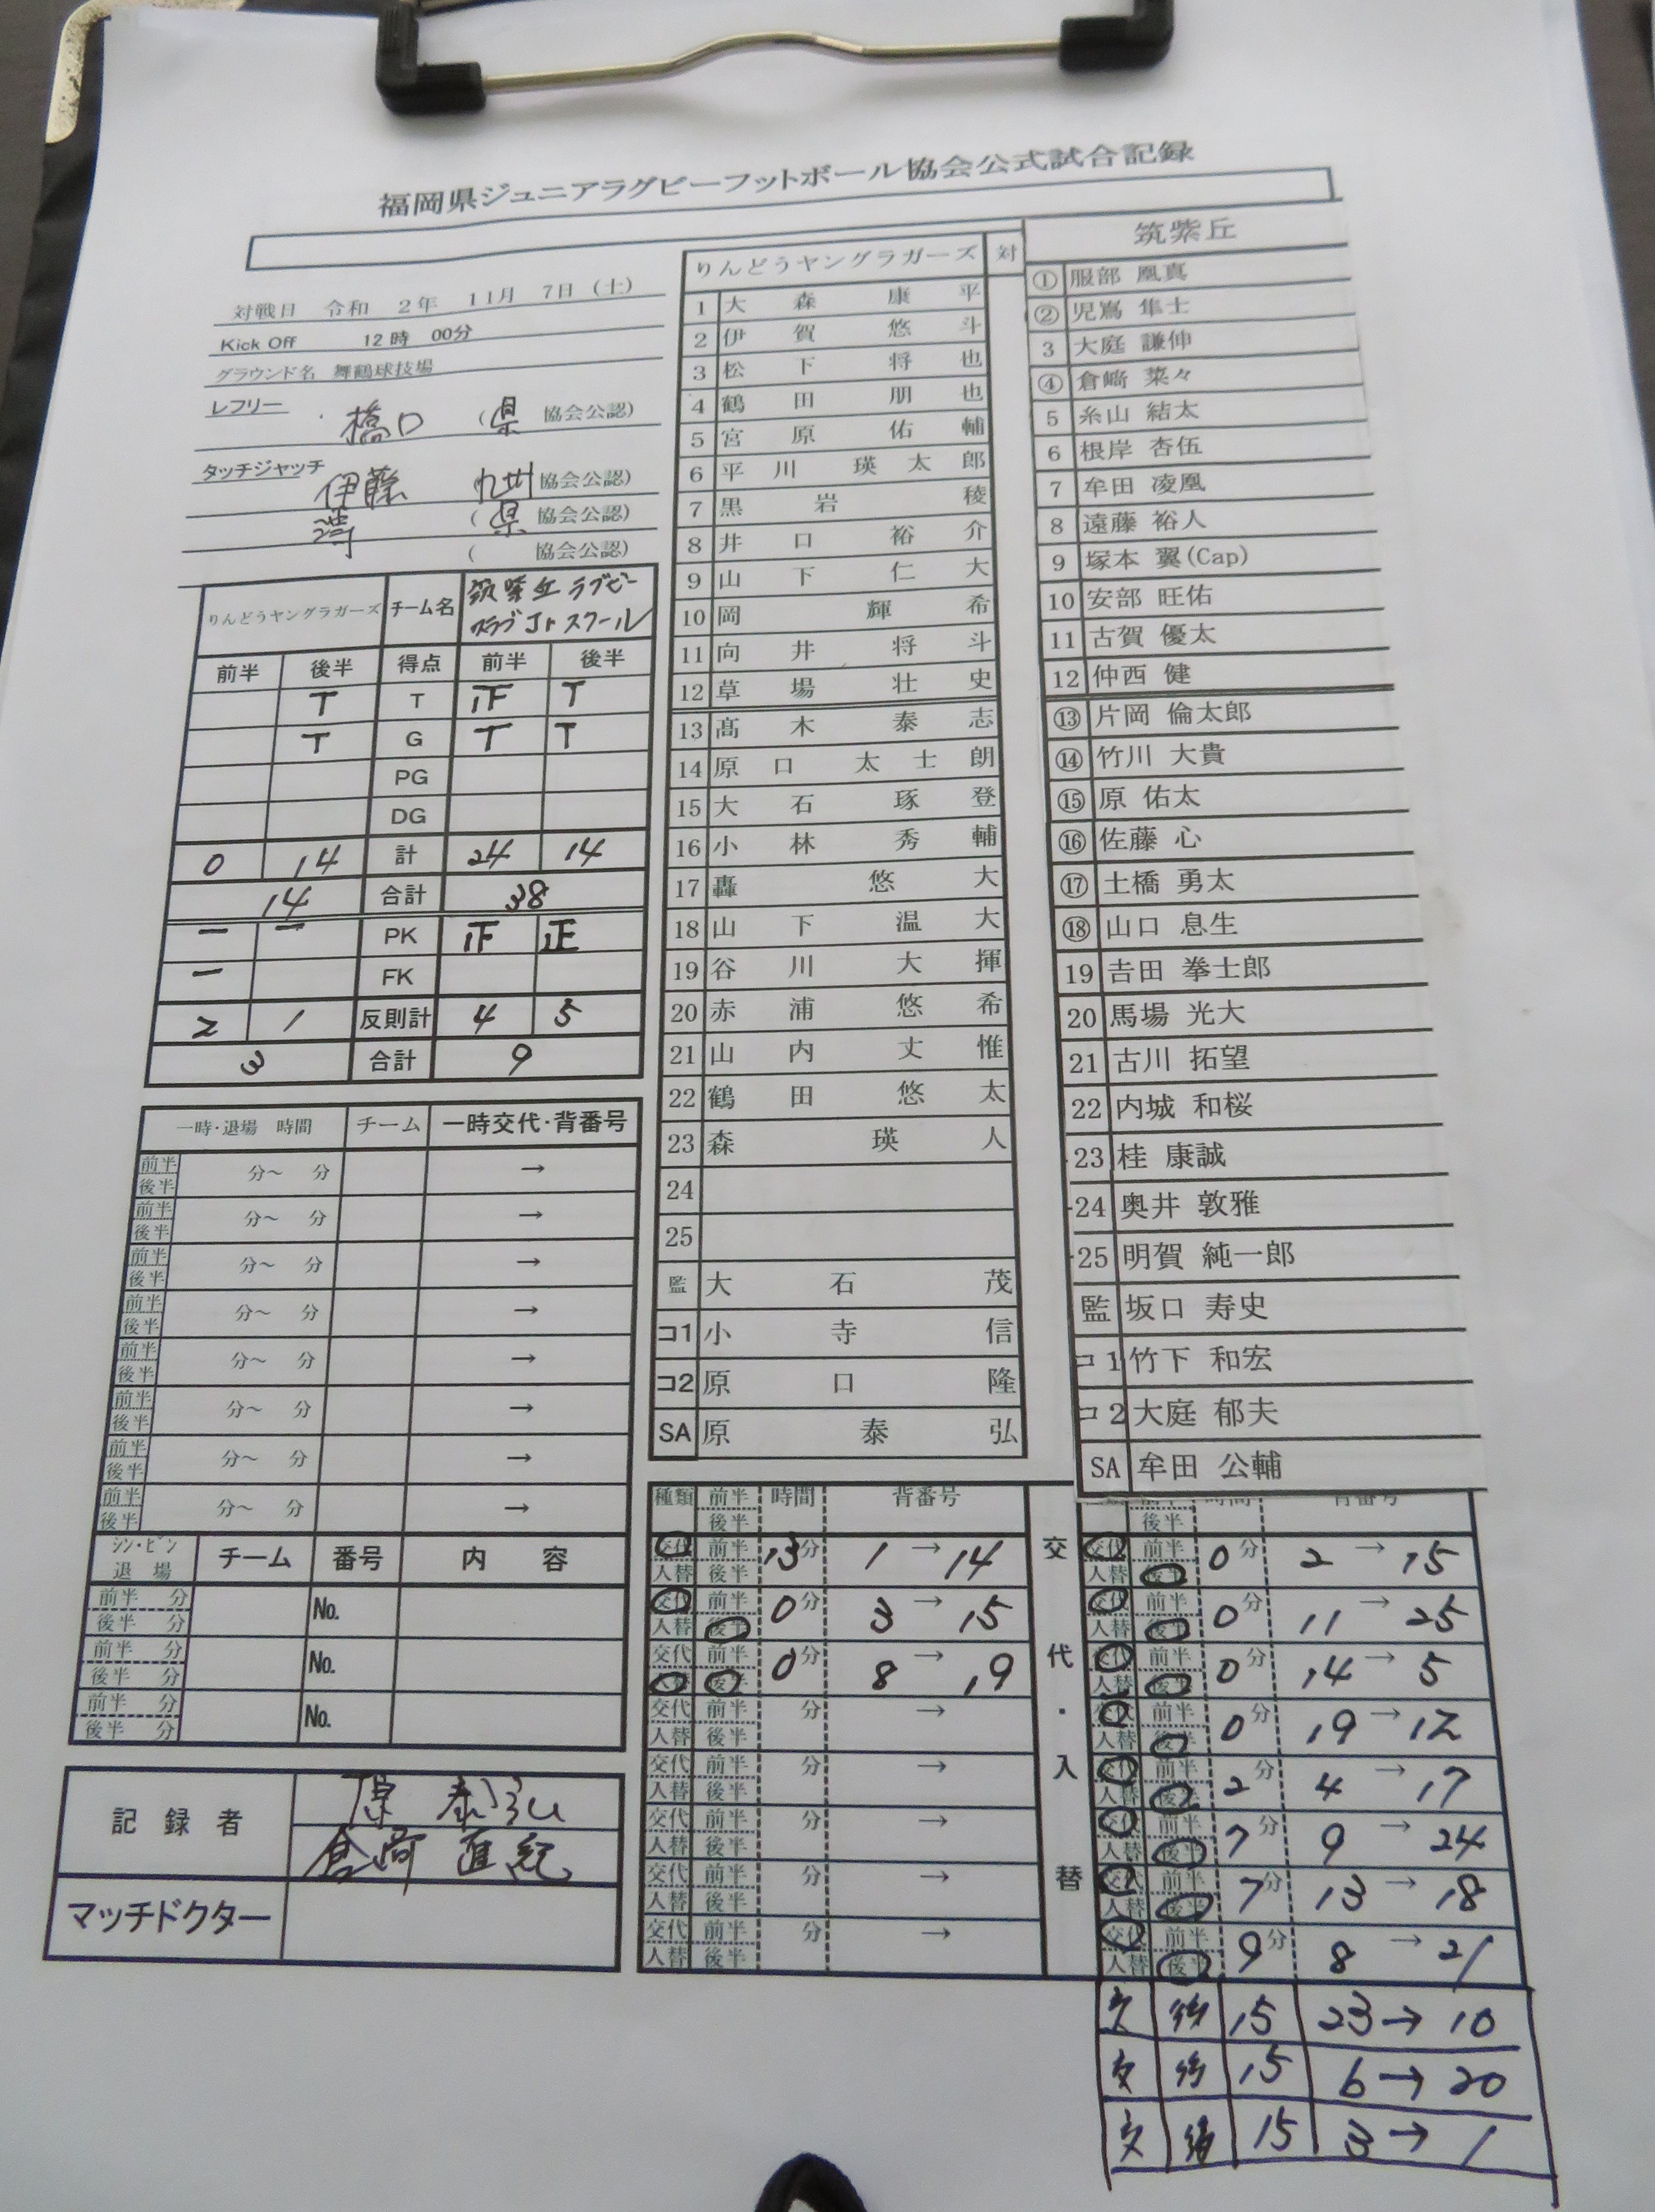 福岡県ジュニアラグビーフットボール協会公式試合記録
対戦日 令和 2年 11月 7日(土)
Kick Off 12時 00分
グラウンド名 舞鶴球技場
レフリー 橋口 (県 協会公認)
タッチジャッチ
伊藤 九州 協会公認)
(県 協会公認)
( 協会公認)
りんどうヤングラガーズ チーム名 筑紫丘ラグビークラブJrスクール
前半 後半 得点 前半 後半
T T 正 T
T G T T
PG
DG
0 14 計 24 14
14 合計 38
一 一 PK 正 正
一 FK
2 1 反則計 4 5
3 合計 9
一時・退場 時間 チーム 一時交代・背番号
前半 後半 分~ 分 →
前半 後半 分~ 分 →
前半 後半 分~ 分 →
前半 後半 分~ 分 →
前半 後半 分~ 分 →
前半 後半 分~ 分 →
前半 後半 分~ 分 →
前半 後半 分~ 分 →
シン・ビン 退場 チーム 番号 内容
前半 分 後半 分 No.
前半 分 後半 分 No.
前半 分 後半 分 No.
記録者 原 泰弘
倉﨑 直紀
マッチドクター
りんどうヤングラガーズ 対
1 大森康平
2 伊賀悠斗
3 松下将也
4 鶴田朋也
5 宮原佑輔
6 平川瑛太郎
7 黒岩稜
8 井口裕介
9 山下仁大
10 岡輝希
11 向井将斗
12 草場壮史
13 髙木泰志
14 原口太士朗
15 大石琢登
16 小林秀輔
17 轟悠大
18 山下温大
19 谷川大揮
20 赤浦悠希
21 山内丈惟
22 鶴田悠太
23 森瑛人
24
25
監 大石茂
コ1 小寺信
コ2 原口隆
SA 原泰弘
筑紫丘
① 服部 凰真
② 児嶌 隼士
3 大庭 謙伸
④ 倉﨑 菜々
5 糸山 結太
6 根岸 杏伍
7 牟田 凌凰
8 遠藤 裕人
9 塚本 翼(Cap)
10 安部 旺佑
11 古賀 優太
12 仲西 健
⑬ 片岡 倫太郎
⑭ 竹川 大貴
⑮ 原 佑太
⑯ 佐藤 心
⑰ 土橋 勇太
⑱ 山口 息生
19 吉田 拳士郎
20 馬場 光大
21 古川 拓望
22 内城 和桜
23 桂 康誠
24 奥井 敦雅
25 明賀 純一郎
監 坂口 寿史
コ1 竹下 和宏
コ2 大庭 郁夫
SA 牟田 公輔
種類 前半 後半 時間 背番号
交代 人替 前半 後半 13分 1 → 14
交代 人替 前半 後半 0分 3 → 15
交代 人替 前半 後半 0分 8 → 19
交代 人替 前半 後半 分 →
交代 人替 前半 後半 分 →
交代 人替 前半 後半 分 →
交代 人替 前半 後半 分 →
交代 人替 前半 後半 分 →
交代・入替
後半 時間 背番号
交代 人替 前半 後半 0分 2 → 15
交代 人替 前半 後半 0分 11 → 25
交代 人替 前半 後半 0分 14 → 5
交代 人替 前半 後半 0分 19 → 12
交代 人替 前半 後半 2分 4 → 17
交代 人替 前半 後半 7分 9 → 24
交代 人替 前半 後半 7分 13 → 18
交代 人替 前半 後半 9分 8 → 21
交 後 15 23 → 10
交 後 15 6 → 20
交 後 15 3 → 1